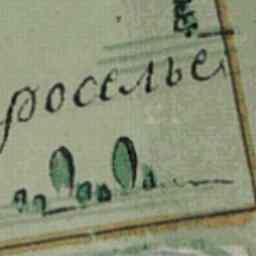 роселье